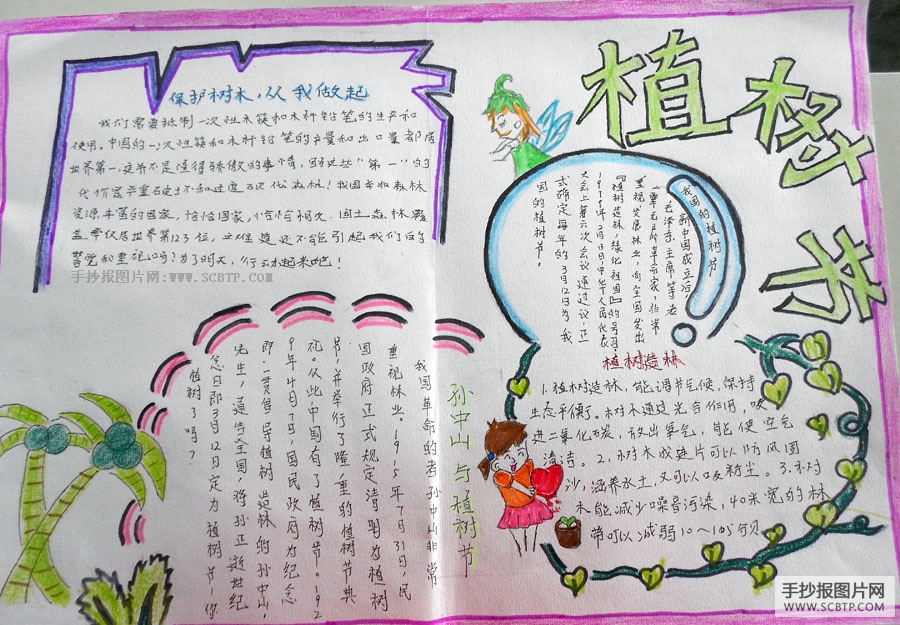 植树节
保护树木,从我做起
我们需要抵制一次性木筷和木杆铅笔的生产和
使用。中国的一次性筷和木杆铅笔的产量和出口量都居
世界第一,这并不是值得骄傲的事情,因为这些"第一"的
代价是严重破坏和过度砍伐森林!我国并非森林
资源丰富的国家,恰恰国家,恰恰相反,国土森林覆
盖率仅居世界第123位,难道还不能引起我们的
警觉和重视吗?为了明天,行动起来吧!
手抄报图片网:WWW.SCBTP.COM
我国的植树节
新中国成立后
毛泽东主席等老
一辈无产阶级革命家,非常
重视发展林业,向全国发出
『植树造林,绿化祖国』的号召
1979年2月日,中华人民代表
大会上第六次会议通过决议,正
式确定每年的3月12日为我
国的植树节。
孙中山与植树节
我国革命的者孙中山非常
重视林业。1915年7月31日,民
国政府正式规定清明为植树
节,并举行了隆重的植树节典
礼。从此中国有了植树节。192
9年4月7日,国民政府为纪念
即一贯倡导植树造林的孙中山,
先生,通告全国,将孙逝世纪
念日即3月12日定为植树节,你
植树了吗?
植树造林
1.植树造林,能调节气候,保持
生态平衡了。树木通过光合作用,吸
进二氧化碳,放出氧气,能使空气
清洁。2.树木成片可以防风固
沙,涵养水土,又可以吸粉尘。3.树
木能减少噪音污染,40米宽的林
带可以减弱10~15分贝。
手抄报图片网
WWW.SCBTP.COM